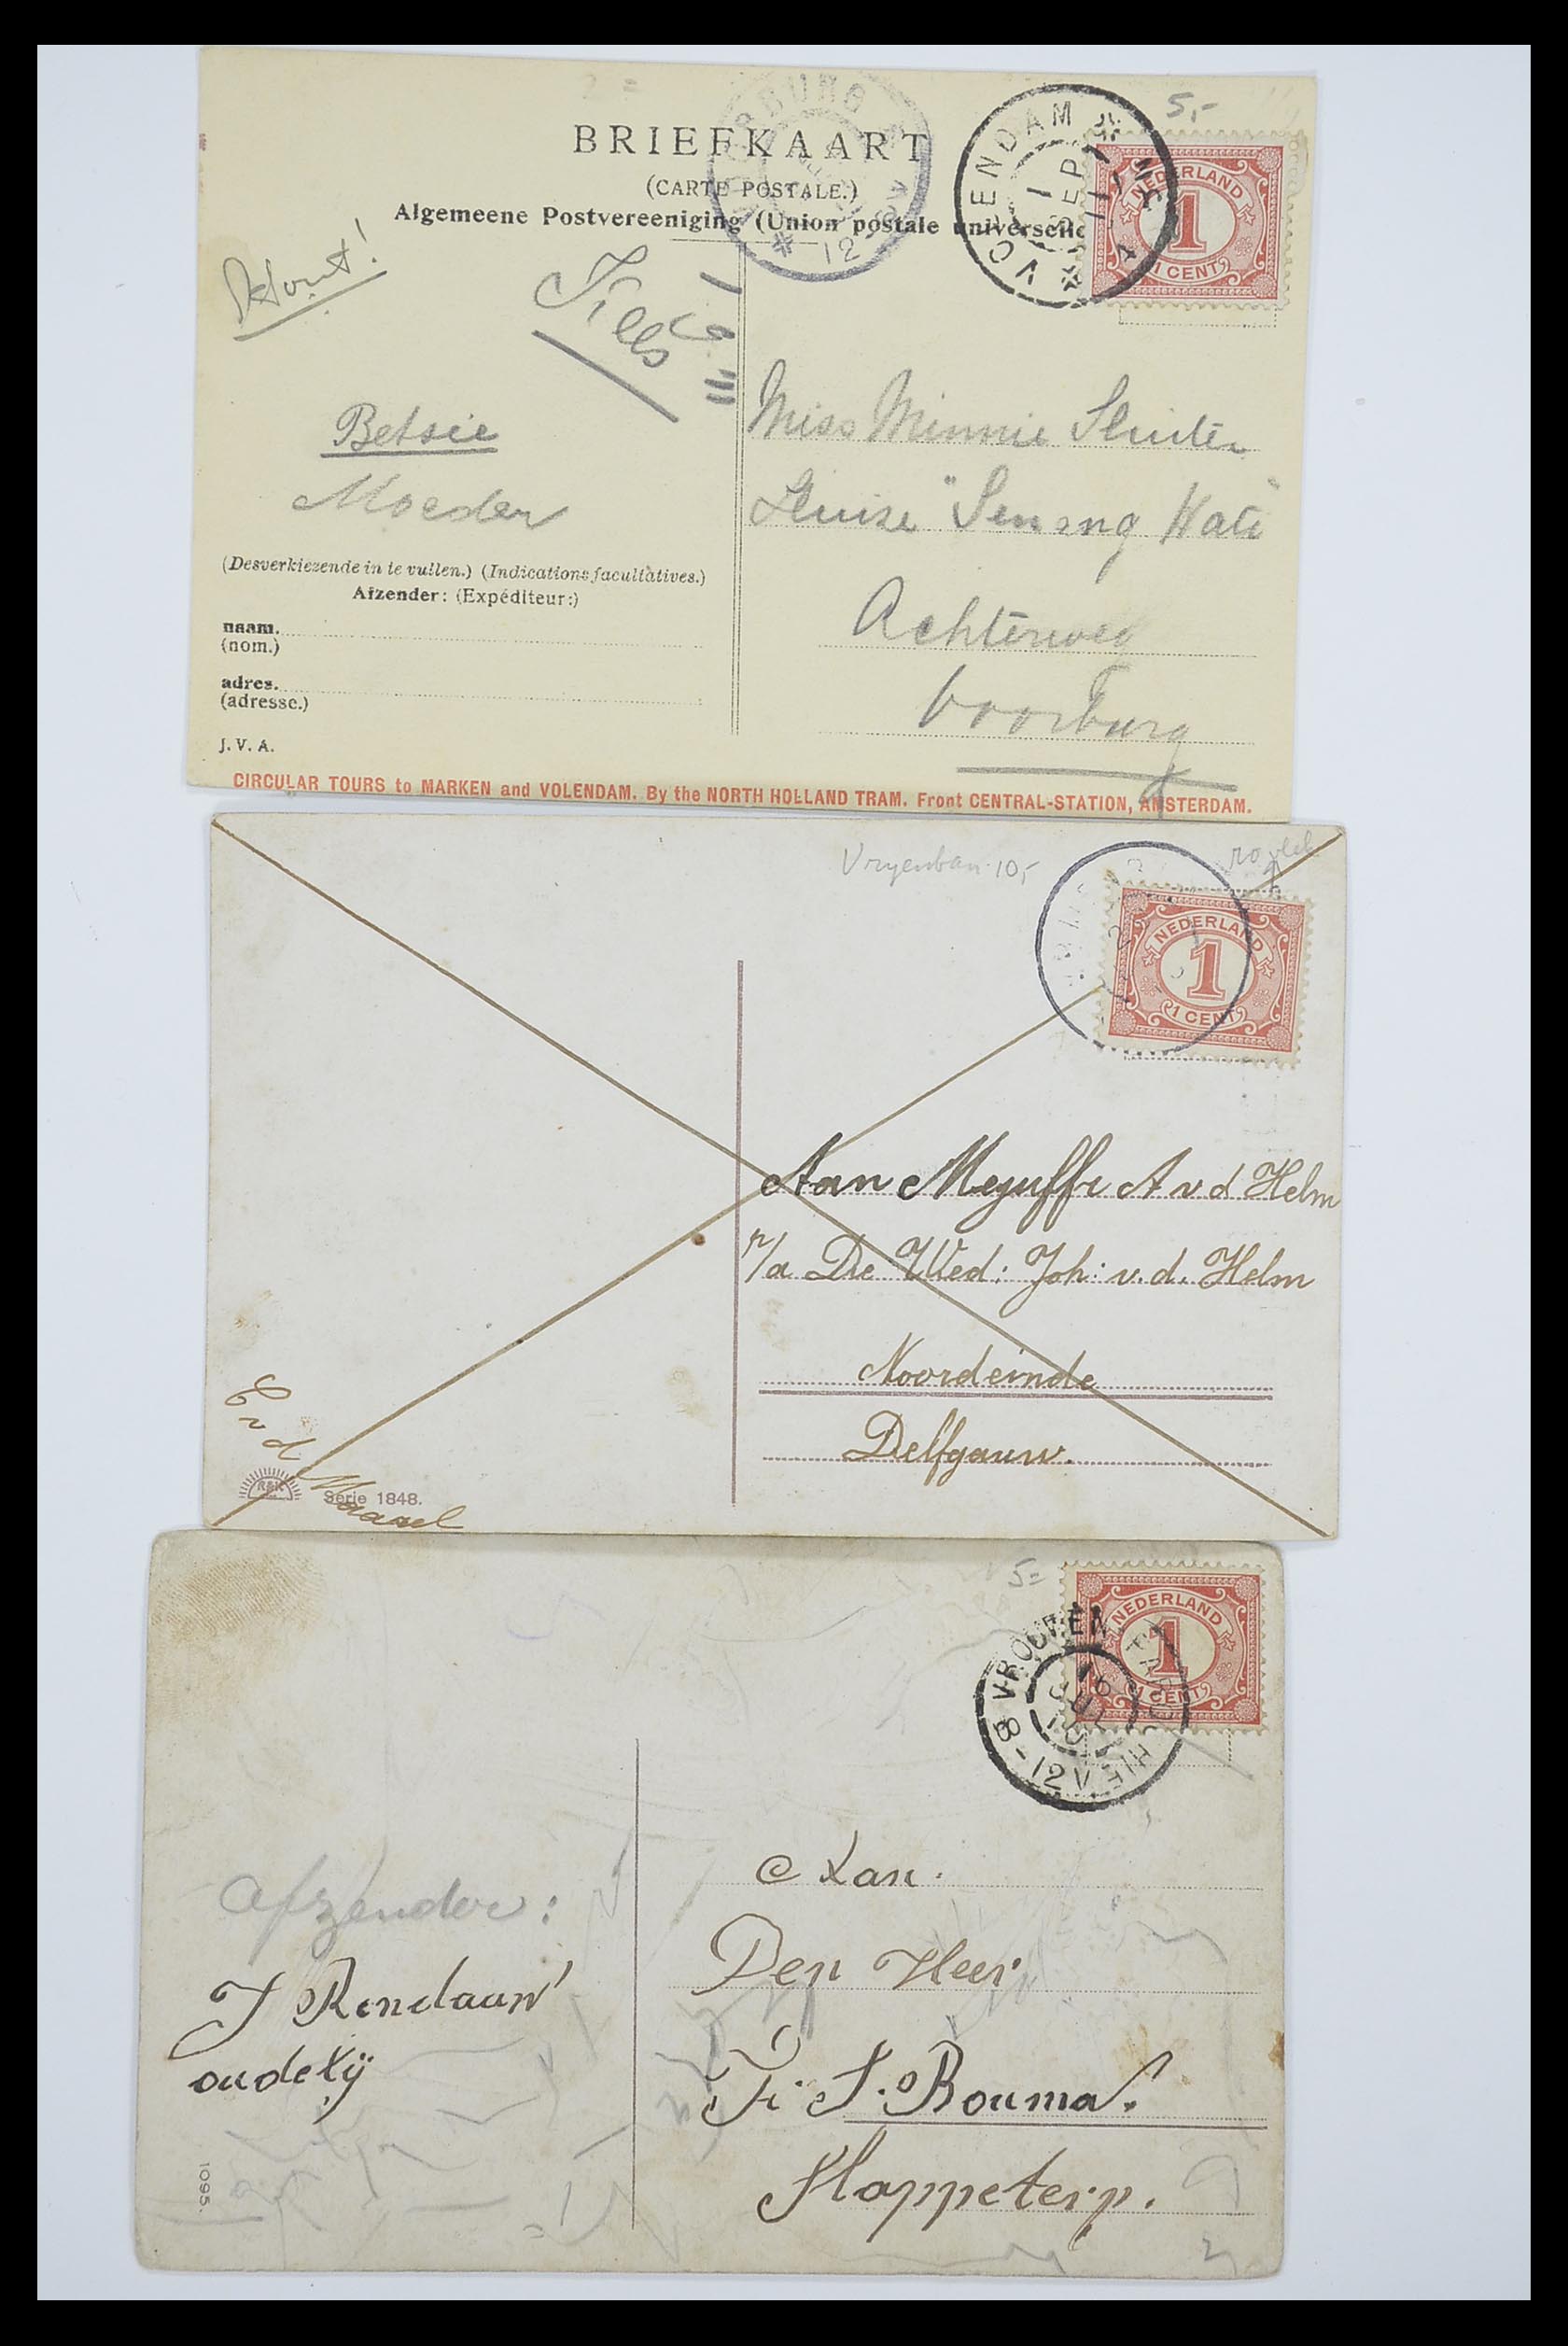 5,-
BRIEFKAART
(CARTE POSTALE.)
Algemeene Postvereeniging (Union postale universelle
VOLENDAM
1 SEP 11
4
12
NEDERLAND
1
1 CENT
Miss Minnie Sluiter
"Senang Hati"
Achterweg
Voorburg
Betsie
Moeder
(Desverkiezende in te vullen.) (Indications facultatives.)
Afzender: (Expéditeur:)
naam.
(nom.)
adres.
(adresse.)
J. V. A.
CIRCULAR TOURS to MARKEN and VOLENDAM. By the NORTH HOLLAND TRAM. Front CENTRAL-STATION, AMSTERDAM.
Vryenban 10,-
NEDERLAND
1
1 CENT
Aan Mejuffr A v d Helm
p/a De Wed: Joh: v. d. Helm
Noordeinde
Delfgauw.
C v d
Serie 1848.
5=
NEDERLAND
1
1 CENT
VROUWEN PAROCHIE
16
8-12V
Aan.
Den Heer
S. Bouma.
afzender:
oudebijl
1095.